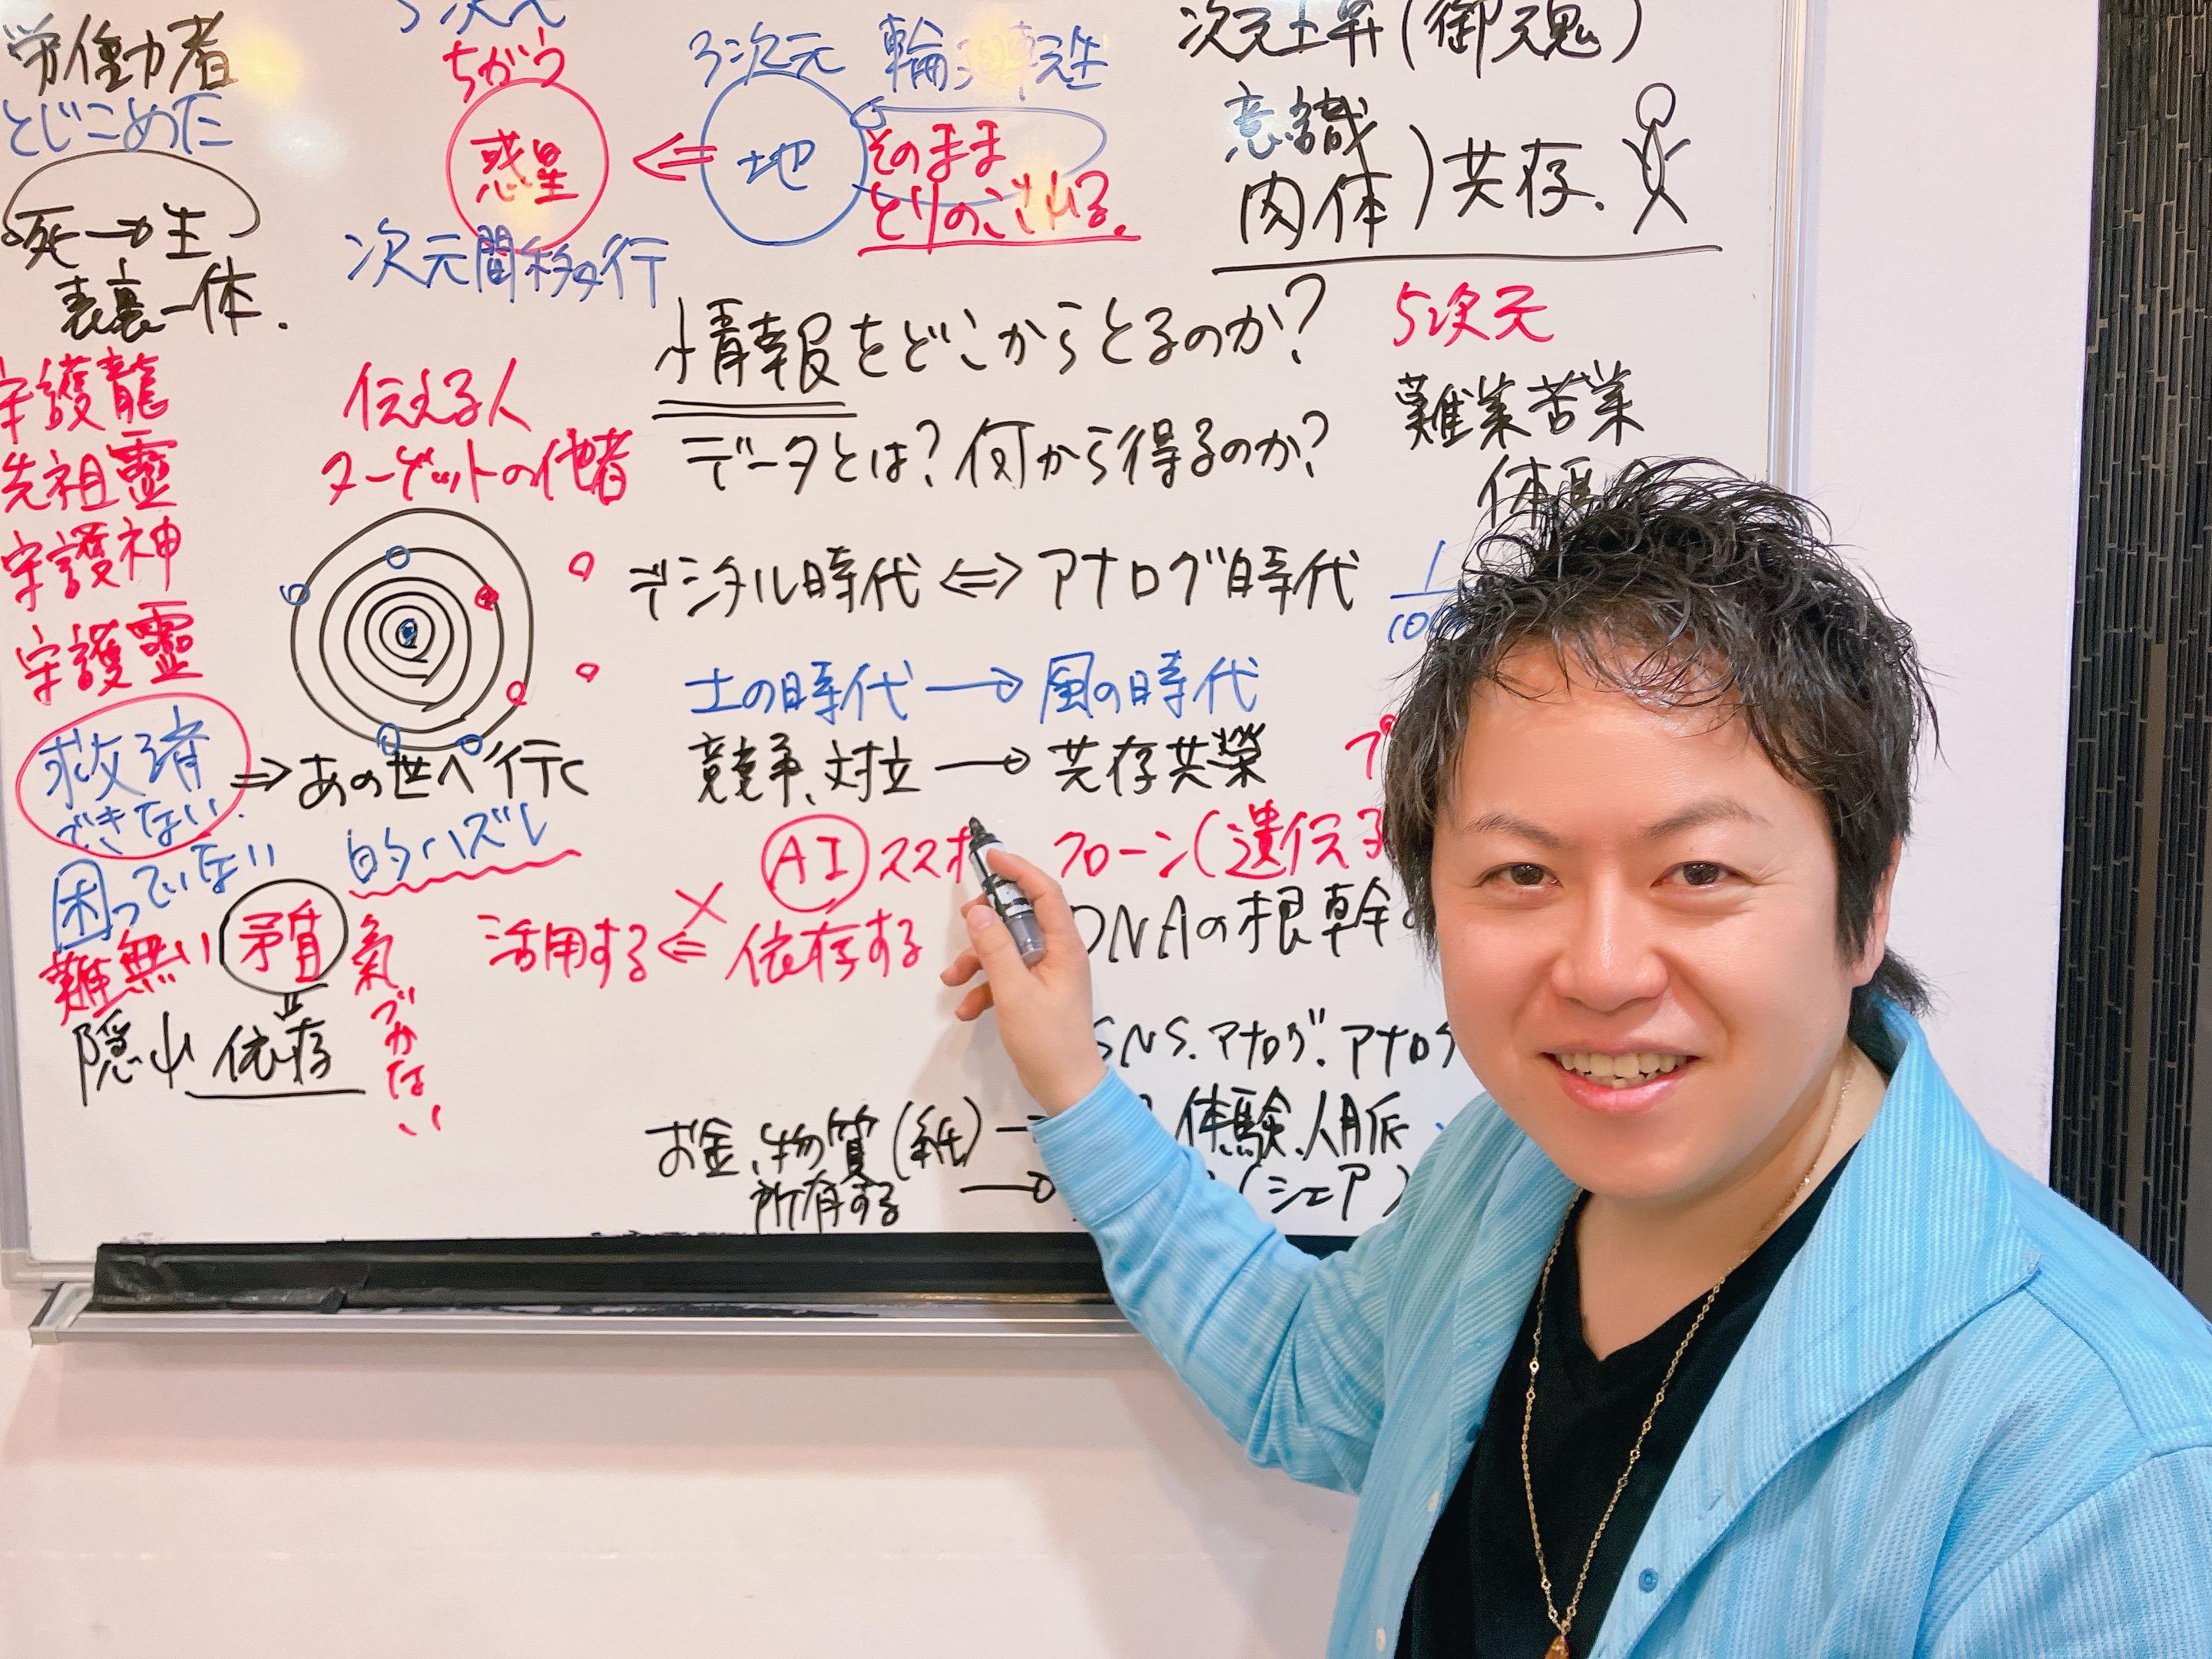 労働者
とじこめた
死→生
表裏一体.
5次元
ちがう
惑星
次元間移行
3次元 輪 転生
地
そのまま
とりのこされる.
次元上昇(御魂)
意識
肉体)共存.
情報をどこからとるのか?
データとは?何から得るのか?
5次元
難業苦業
守護龍
先祖霊
守護神
守護靈
伝える人
ターゲットの他者
デジタル時代 ⇔ アナログ時代
土の時代 → 風の時代
競争、対立 → 共存共榮
救済
できない.
⇒ あの世へ行く
的ハズレ
困っていない
難無い
矛盾
氣づかない
隠れ 依存
AI ススオ
クローン(遺伝子
活用する ⇐ 依存する
×
DNAの根幹
SNS.アナログ.アナログ
お金、物質(紙) →
体験、人脈
所有する →
(シェア)